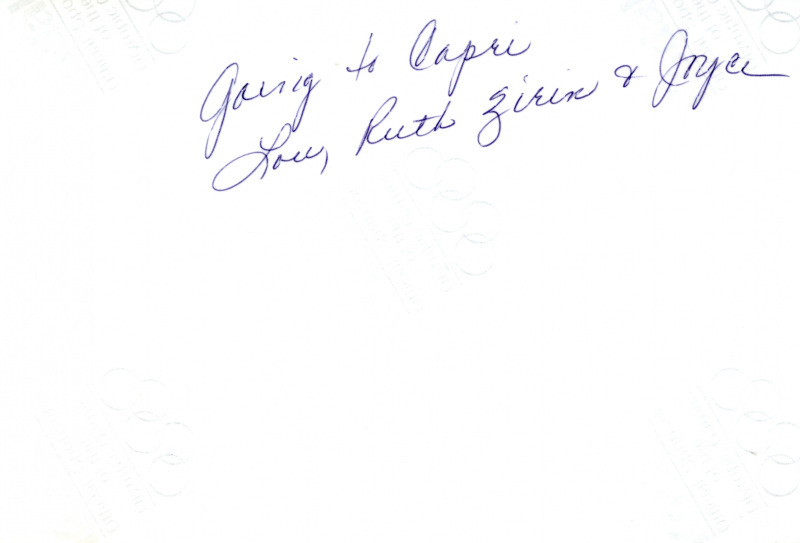 Going to Capri
Lou, Ruth Zirin & Joyce